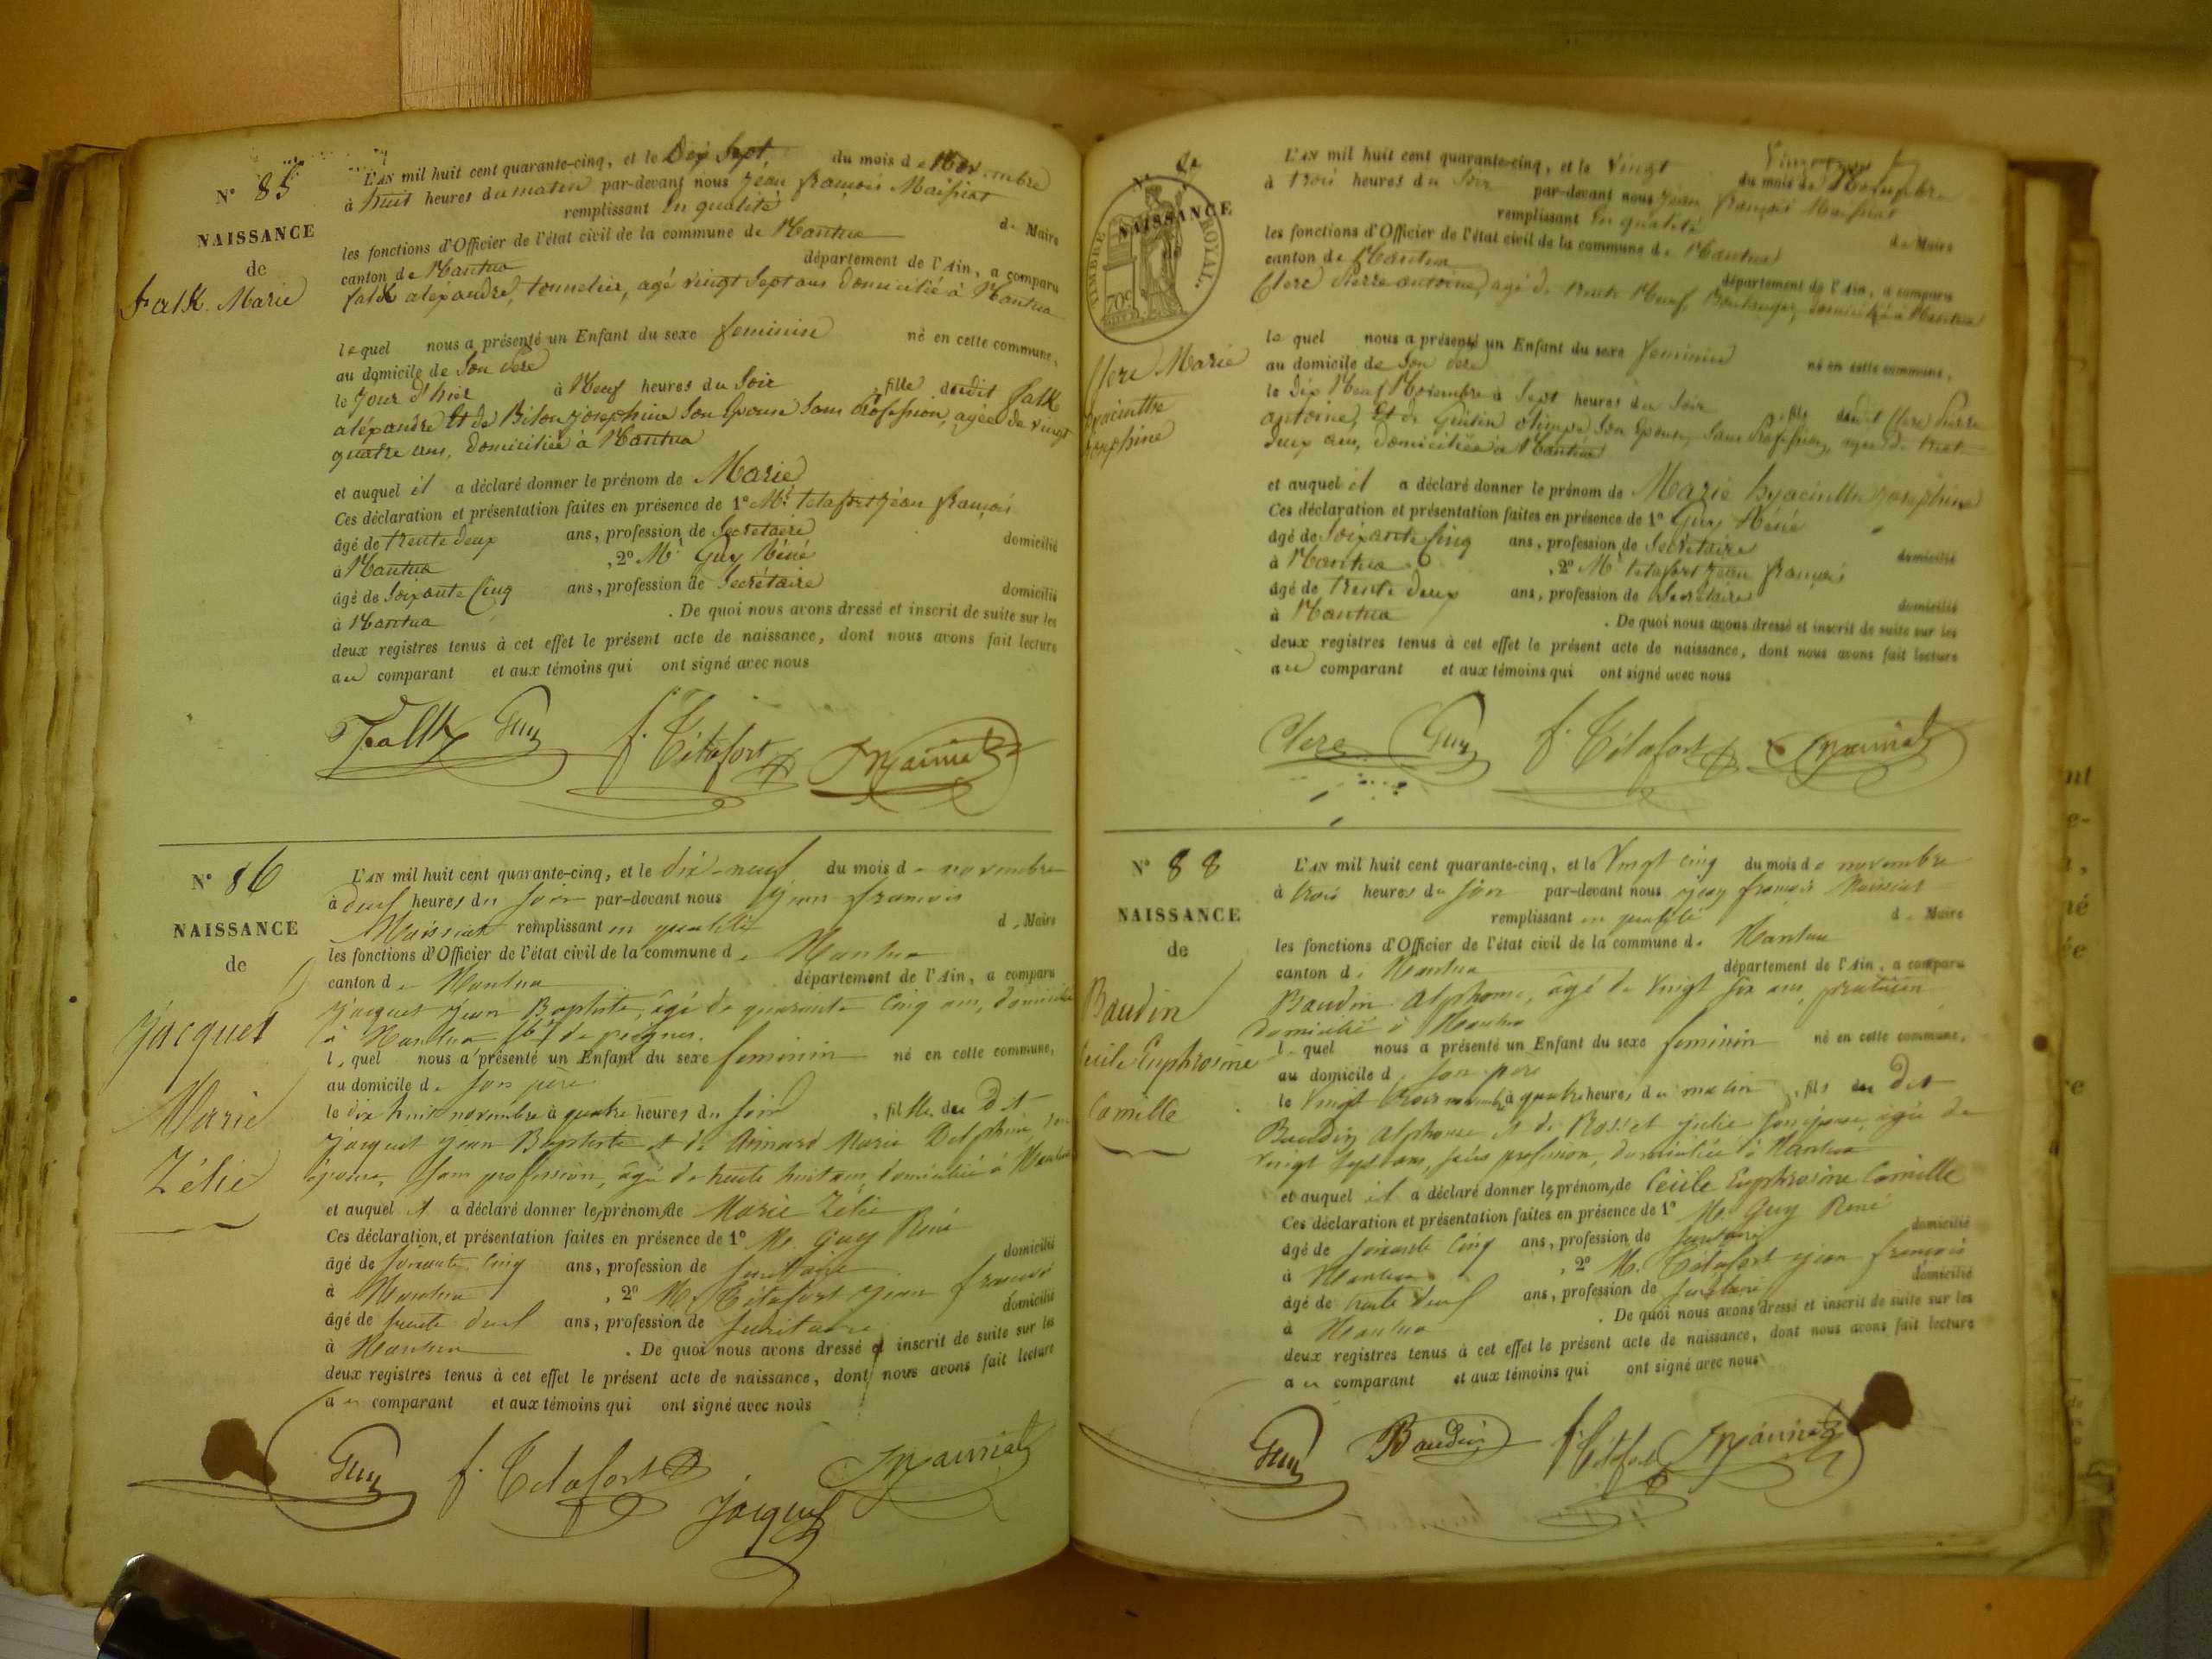 N° 85
NAISSANCE
de
Falk Marie
L'AN mil huit cent quarante-cinq, et le Dix Sept du mois de Novembre
à huit heures du matin par-devant nous Jean françois Maissiat
remplissant en qualité de Maire
les fonctions d'Officier de l'état civil de la commune de Nantua
canton de Nantua département de l'Ain, a comparu
falk aléxandre, tonnelier, agé vingt Sept ans domicilié à Nantua
lequel nous a présenté un Enfant du sexe feminin né en cette commune,
au domicile de Son père
le Jour d'hier à Neuf heures du Soir , fille dudit falk
aléxandre Et de Biton Josephine Son Epouse Sans Profession, agée de vingt
quatre ans, domiciliée à Nantua
et auquel il a déclaré donner le prénom de Marie
Ces déclaration et présentation faites en présence de 1° Mr. tétafort Jean françois
âgé de trente deux ans, profession de Secretaire domicilié
à Nantua , 2° Mr Guy Réné
âgé de Soixante Cinq ans, profession de Secrétaire domicilié
à Nantua . De quoi nous avons dressé et inscrit de suite sur les
deux registres tenus à cet effet le présent acte de naissance, dont nous avons fait lecture
au comparant et aux témoins qui ont signé avec nous
Falk Guy f. Tétafort Maissiat
N° 86
NAISSANCE
de
Jacquet
Marie
Zélie
L'AN mil huit cent quarante-cinq, et le dix-neuf du mois de novembre
à deux heures du soir par-devant nous Jean françois
Maissiat remplissant en qualité de Maire
les fonctions d'Officier de l'état civil de la commune de Nantua
canton de Nantua département de l'Ain, a comparu
Jacquet Jean Baptiste, âgé de quarante cinq ans, domicilié
à Nantua de peignes.
lequel nous a présenté un Enfant du sexe feminin né en cette commune,
au domicile de son père
le dix huit novembre à quatre heures du soir , fille du dit
Jacquet Jean Baptiste et de Aimard Marie Delphine, son
épouse, sans profession, âgée de trente huit ans, domiciliée à Nantua
et auquel il a déclaré donner les prénoms de Marie Zélie
Ces déclaration et présentation faites en présence de 1° M. Guy René
âgé de soixante cinq ans, profession de secrétaire domicilié
à Nantua , 2° M. Tétafort Jean françois
âgé de trente deux ans, profession de secrétaire domicilié
à Nantua . De quoi nous avons dressé et inscrit de suite sur les
deux registres tenus à cet effet le présent acte de naissance, dont nous avons fait lecture
au comparant et aux témoins qui ont signé avec nous
Guy f. Tétafort Jacquet Maissiat
N°
NAISSANCE
TIMBRE ROYAL
70c
Clerc Marie
hyacinthe
Josephine
L'AN mil huit cent quarante-cinq, et le Vingt du mois de Novembre
à trois heures du Soir par-devant nous Jean françois Maissiat
remplissant en qualité de Maire
les fonctions d'Officier de l'état civil de la commune de Nantua
canton de Nantua département de l'Ain, a comparu
Clerc Pierre antoine, agé de trente Neuf, Boulanger, domicilié à Nantua
lequel nous a présenté un Enfant du sexe feminin né en cette commune,
au domicile de Son père
le dix Neuf Novembre à Sept heures du Soir , fils dudit Clerc Pierre
antoine, Et de olimpe Son Epouse, Sans Profession, agée de trente
deux ans, domiciliée à Nantua
et auquel il a déclaré donner le prénom de Marie hyacinthe Josephine
Ces déclaration et présentation faites en présence de 1° Guy Réné
âgé de Soixante Cinq ans, profession de Secrétaire domicilié
à Nantua , 2° Mr tétafort Jean françois
âgé de trente deux ans, profession de Secretaire domicilié
à Nantua . De quoi nous avons dressé et inscrit de suite sur les
deux registres tenus à cet effet le présent acte de naissance, dont nous avons fait lecture
au comparant et aux témoins qui ont signé avec nous
Clerc Guy f. Tétafort Maissiat
N° 88
NAISSANCE
de
Baudin
Cécile Euphrosine
Camille
L'AN mil huit cent quarante-cinq, et le Vingt cinq du mois de novembre
à trois heures du soir par-devant nous Jean françois Maissiat
remplissant en qualité de Maire
les fonctions d'Officier de l'état civil de la commune de Nantua
canton de Nantua département de l'Ain, a comparu
Baudin Alphonse, âgé de Vingt six ans, praticien
domicilié à Nantua
lequel nous a présenté un Enfant du sexe feminin né en cette commune,
au domicile de son père
le Vingt trois novembre à quatre heures du matin , fils du dit
Baudin Alphonse et de Rosset Julie son épouse, agée de
vingt sept ans, sans profession, domiciliée à Nantua
et auquel il a déclaré donner les prénoms de Cécile Euphrosine Camille
Ces déclaration et présentation faites en présence de 1° M. Guy René
âgé de soixante cinq ans, profession de secrétaire domicilié
à Nantua , 2° M. Tétafort Jean françois
âgé de trente deux ans, profession de secrétaire domicilié
à Nantua . De quoi nous avons dressé et inscrit de suite sur les
deux registres tenus à cet effet le présent acte de naissance, dont nous avons fait lecture
au comparant et aux témoins qui ont signé avec nous
Guy Baudin f. Tétafort Maissiat